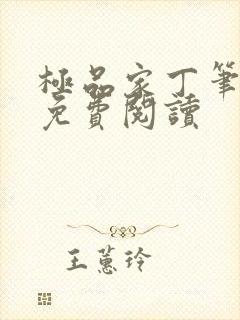 極品家丁筆
免費閱讀
王蕙玲